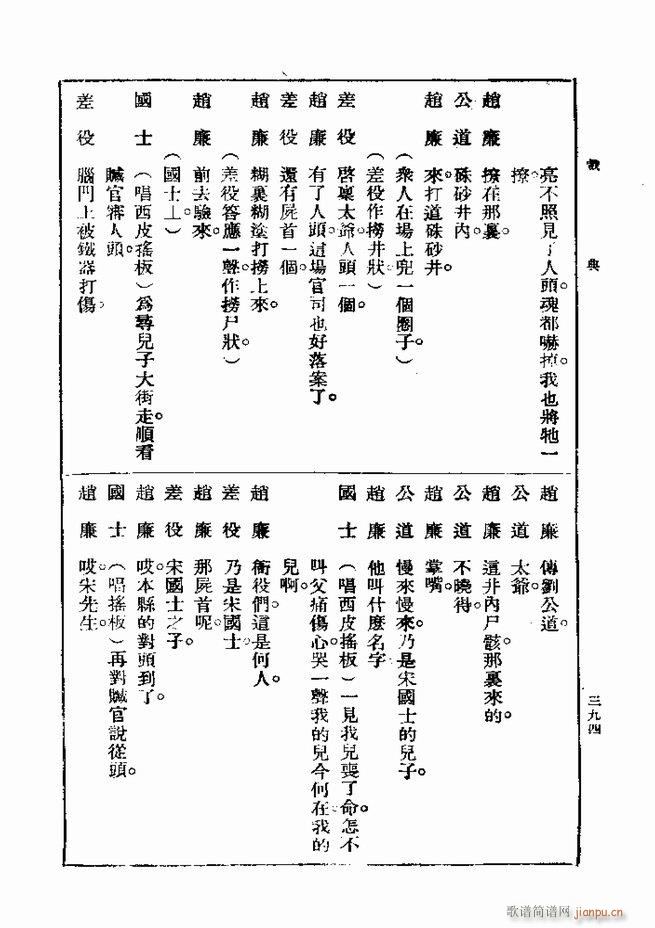 戲典
亮不照見了人頭。魂都嚇掉。我也將牠一
撩。
趙廉 撩在那裏。
公道 硃砂井內。
趙廉 來打道硃砂井。
(衆人在場上兜一個圈子。)
(差役作撈井狀。)
差役 啓稟太爺人頭一個。
趙廉 有了人頭。這場官司也好落案了。
差役 還有屍首一個。
趙廉 糊裏糊塗打撈上來。
(差役答應一聲作撈尸狀。)
趙廉 前去驗來。
(國士上)
國士 (唱西皮搖板)爲尋兒子大街走。順看
贓官審人頭。
差役 腦門上被鐵器打傷。
趙廉 傳劉公道。
公道 太爺。
趙廉 這井內尸骸那裏來的。
公道 不曉得。
趙廉 掌嘴。
公道 慢來慢來。乃是宋國士的兒子。
趙廉 他叫什麽名字
國士 (唱西皮搖板)一見我兒喪了命。怎不
叫父痛傷心。哭一聲我的兒今何在。我的
兒啊。
趙廉 衙役們這是何人。
差役 乃是宋國士。
趙廉 那屍首呢。
差役 宋國士之子。
趙廉 哎。本縣的對頭到了。
國士 (唱搖板)再對贓官說從頭。
趙廉 哎。宋先生。
三九四
歌谱简谱网 jianpu.cn